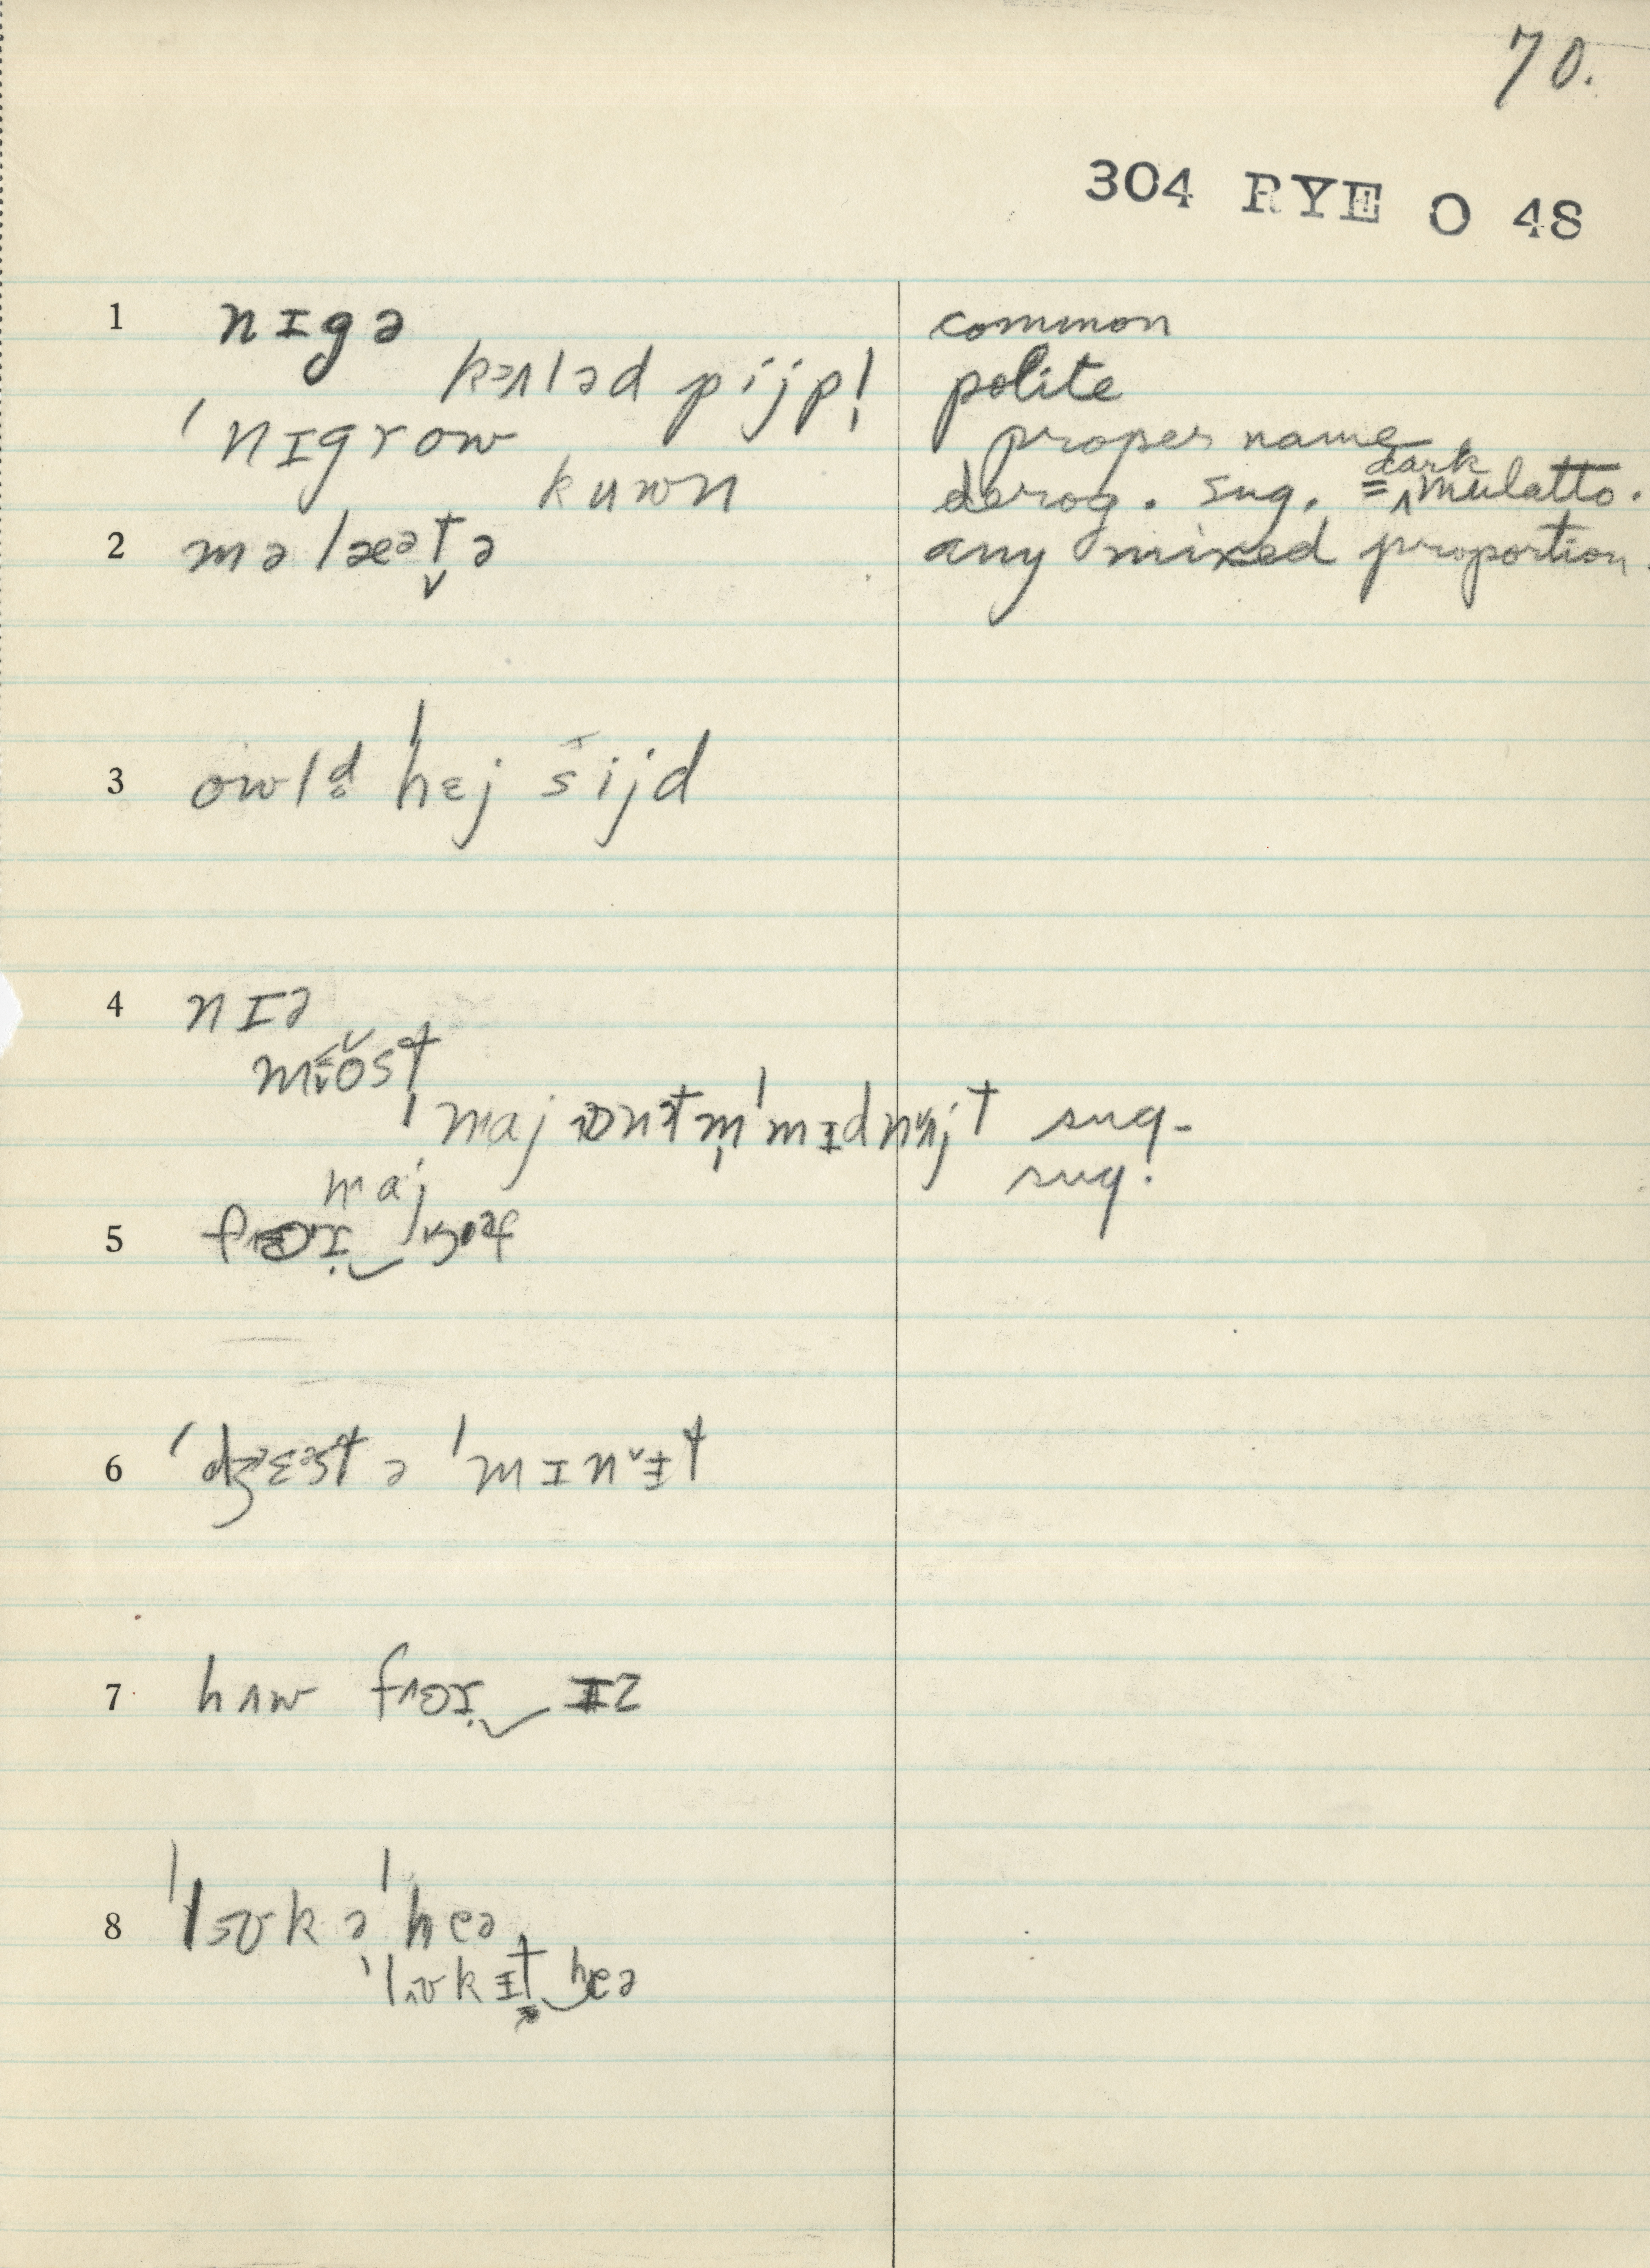 70.
304 RYE O 48
1 nɪgə common
kɜʌləd pijpl̩ polite
ˈnɪgrow proper name
kuwn derog. sug. = ‸dark mulatto.
2 məlæᵊt̬ə any mixed proportion.
3 owld̥ ˈhɛj sijd
4 nɪə
most
ˈmaj ɔnᵊtm̩ ˈmɪdnʌjt sug.
maj sug.
5
6 ˈdʒɛᵊst ə ˈmɪnɨt
7 hʌw fʌɚ ɪz
8 ˈlʊk ə ˈheə
ˈlʊkɪt‿heə